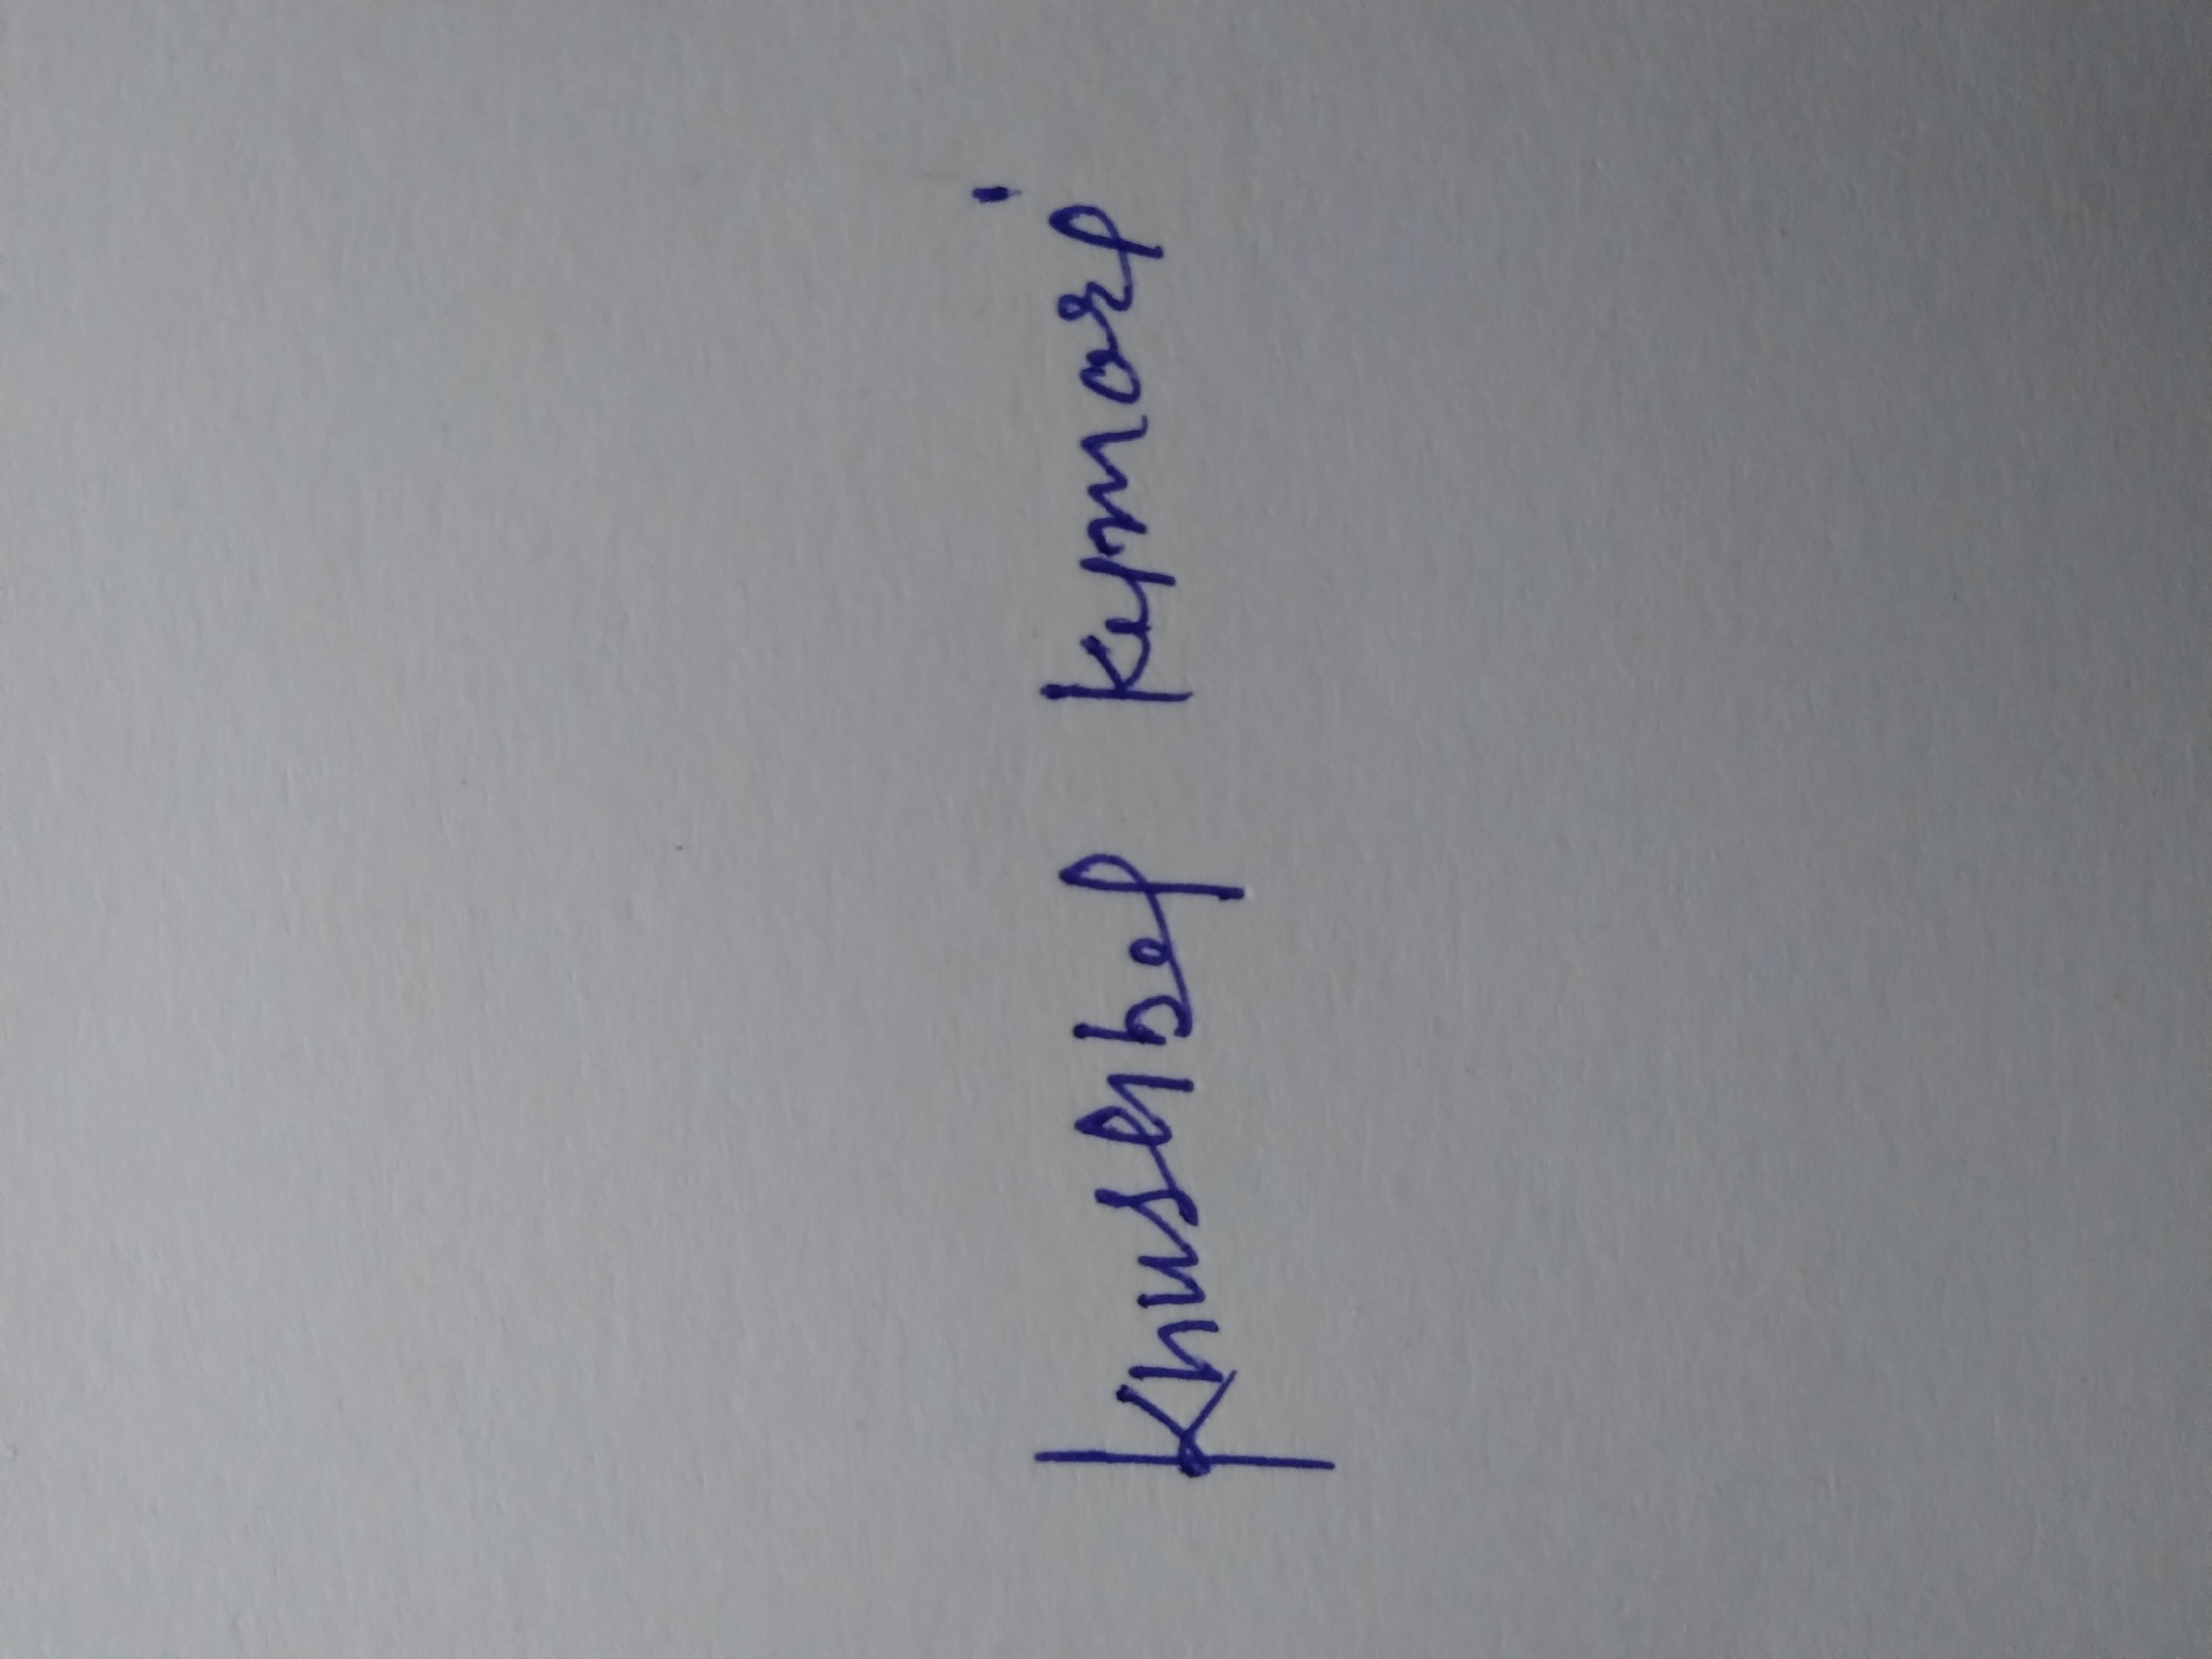 Khushboo Kumari